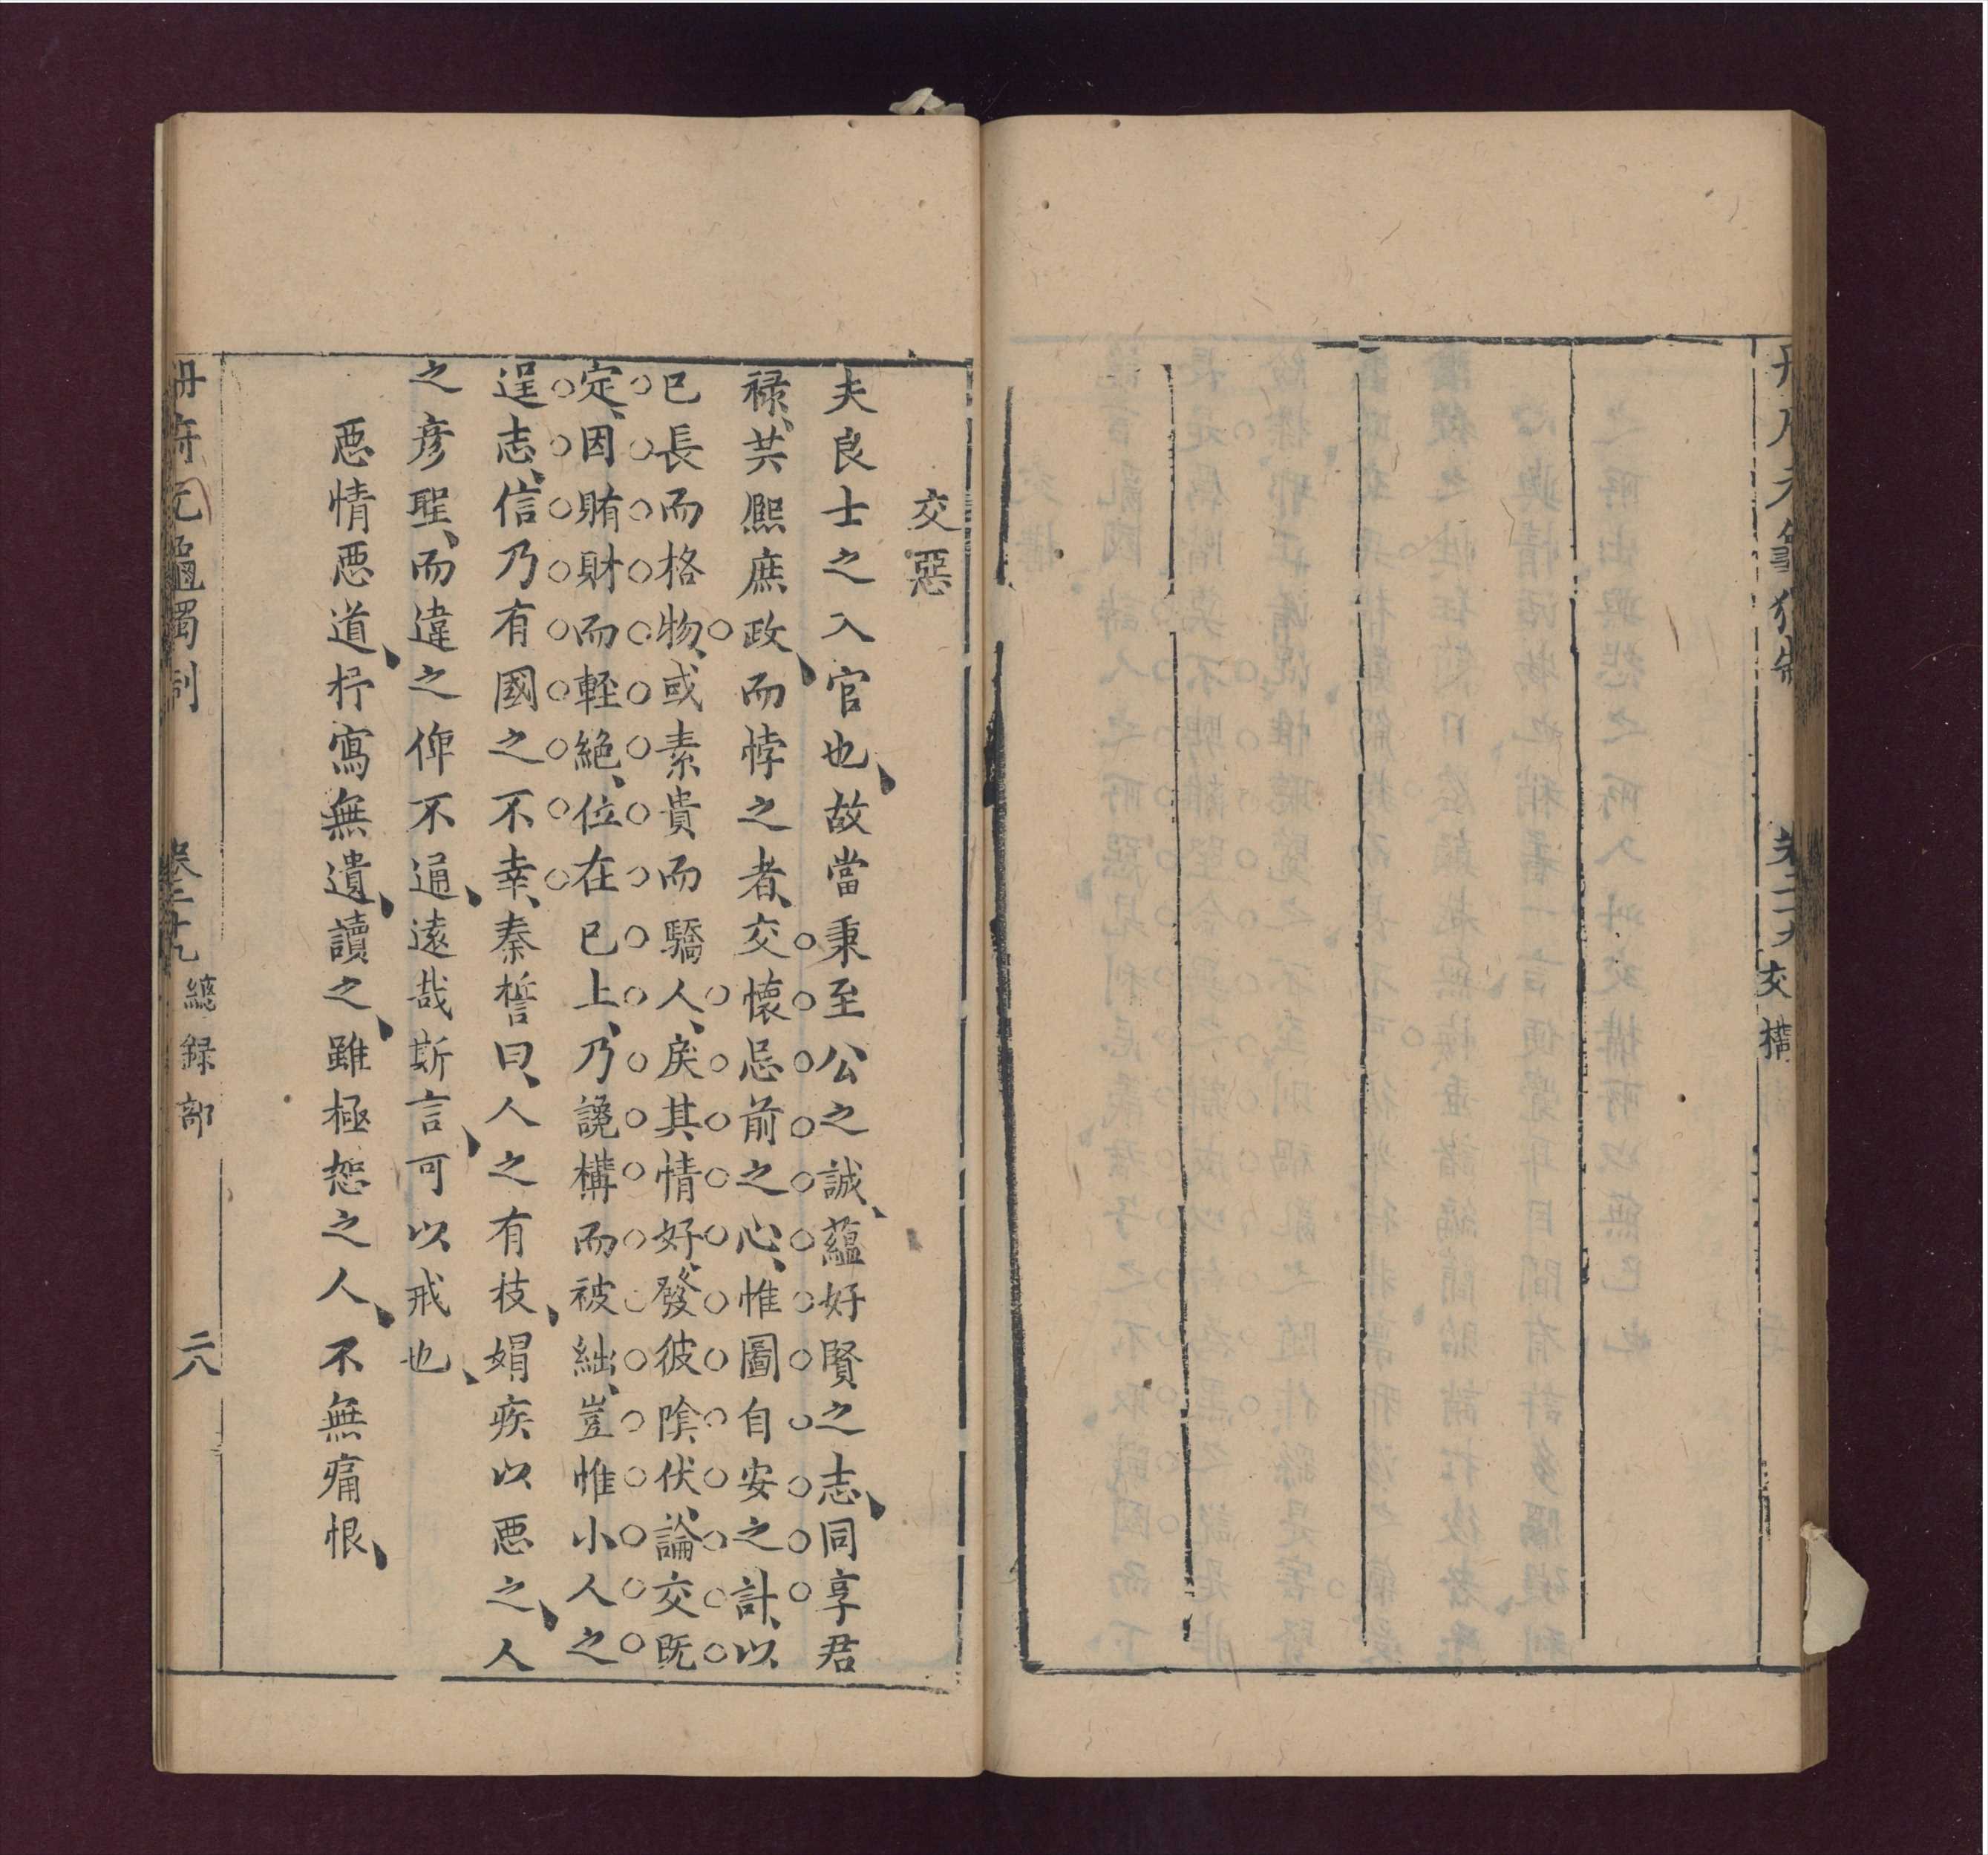 交構
交惡
夫良士之入官也、故當秉至公之誠、蘊好賢之志、同享君
禄、共熙庶政、而悖之者、交懷忌前之心、惟圖自安之計、以
已長而格物、或素貴而驕人、戾其情好、發彼陰伏、論交既
定、因賄財而輕絕、位在已上、乃讒構而被絀、豈惟小人之
逞志、信乃有國之不幸、秦誓曰、人之有技、娼疾以惡之、人
之彥聖、而違之俾不通、遠哉斯言、可以戒也、
惡情惡道、杼寫無遺、讀之、雖極恕之人、不無痛恨、
冊府元龜獨制 卷二十九 總録部 二八